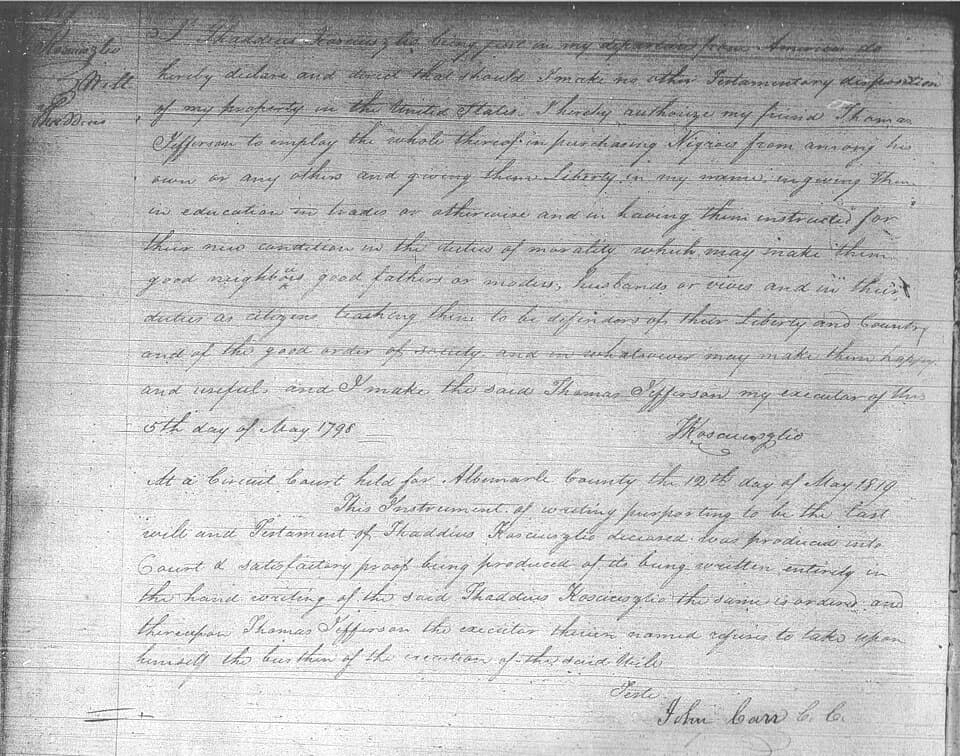 Kosciuszko
Will
of
Thaddeus
I Thaddeus Kosciuszko being just in my departure from America do
hereby declare and direct that should I make no other Testamentary disposition
of my property in the United States I hereby authorize my friend Thomas
Jefferson to employ the whole thereof in purchasing Negroes from among his
own or any others and giving them Liberty in my name, in giving them
in education in trades or otherwise and in having them instructed for
their new condition in the duties of morality which may make them
good neighbours good fathers or moders, husbands or vives and in their
duties as citizens teaching them to be defenders of their Liberty and Country
and of the good order of society and in whatsoever may make them happy
and useful. and I make the said Thomas Jefferson my executor of this
5th day of May 1798
TKosciuszko
At a Circuit Court held for Albemarle County the 12th day of May 1819
This Instrument of writing purporting to be the last
will and Testament of Thaddeus Kosciuszko deceased was produced into
Court & satisfactory proof being produced of its being written entirely in
the hand writing of the said Thaddeus Kosciuszko the same is ordered and
thereupon Thomas Jefferson the executor therein named refuses to take upon
himself the burthen of the execution of the said Will
Teste
John Carr C. C.